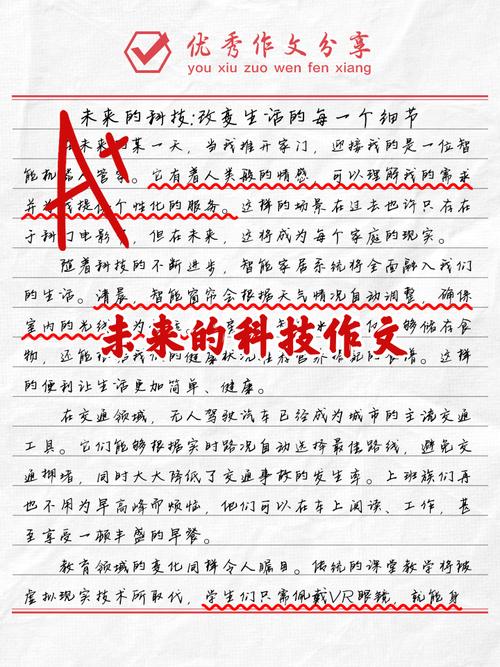 优秀作文分享
you xiu zuo wen fen xiang
未来的科技:改变生活的每一个细节
未来 某一天，当我推开家门，迎接我的是一位智
能机 管家。它有着人类般的情感，可以理解我的需求
并 我提 个性化的服务。这样的场景在过去也许只存在
于科幻电影 ，但在未来，这将成为每个家庭的现实。
随着科技的不断进步，智能家居系统将全面融入我们
的生活。清晨，智能窗帘会根据天气情况自动调整，确保
室内的光线 够储存食
未来的科技作文
物，还能 的健康状况 。这样
的便利让生活更加简单、健康。
在交通领域，无人驾驶汽车已经成为城市的主流交通
工具。它们能够根据实时路况自动选择最佳路线，避免交
通拥堵，同时大大降低了交通事故的发生率。上班族们再
也不用为早高峰而烦恼，他们可以在车上阅读、工作，甚
至享受一顿丰盛的早餐。
教育领域的变化同样令人瞩目。传统的课堂教学将被
虚拟现实技术所取代，学生们只需佩戴VR眼镜，就能身
A+